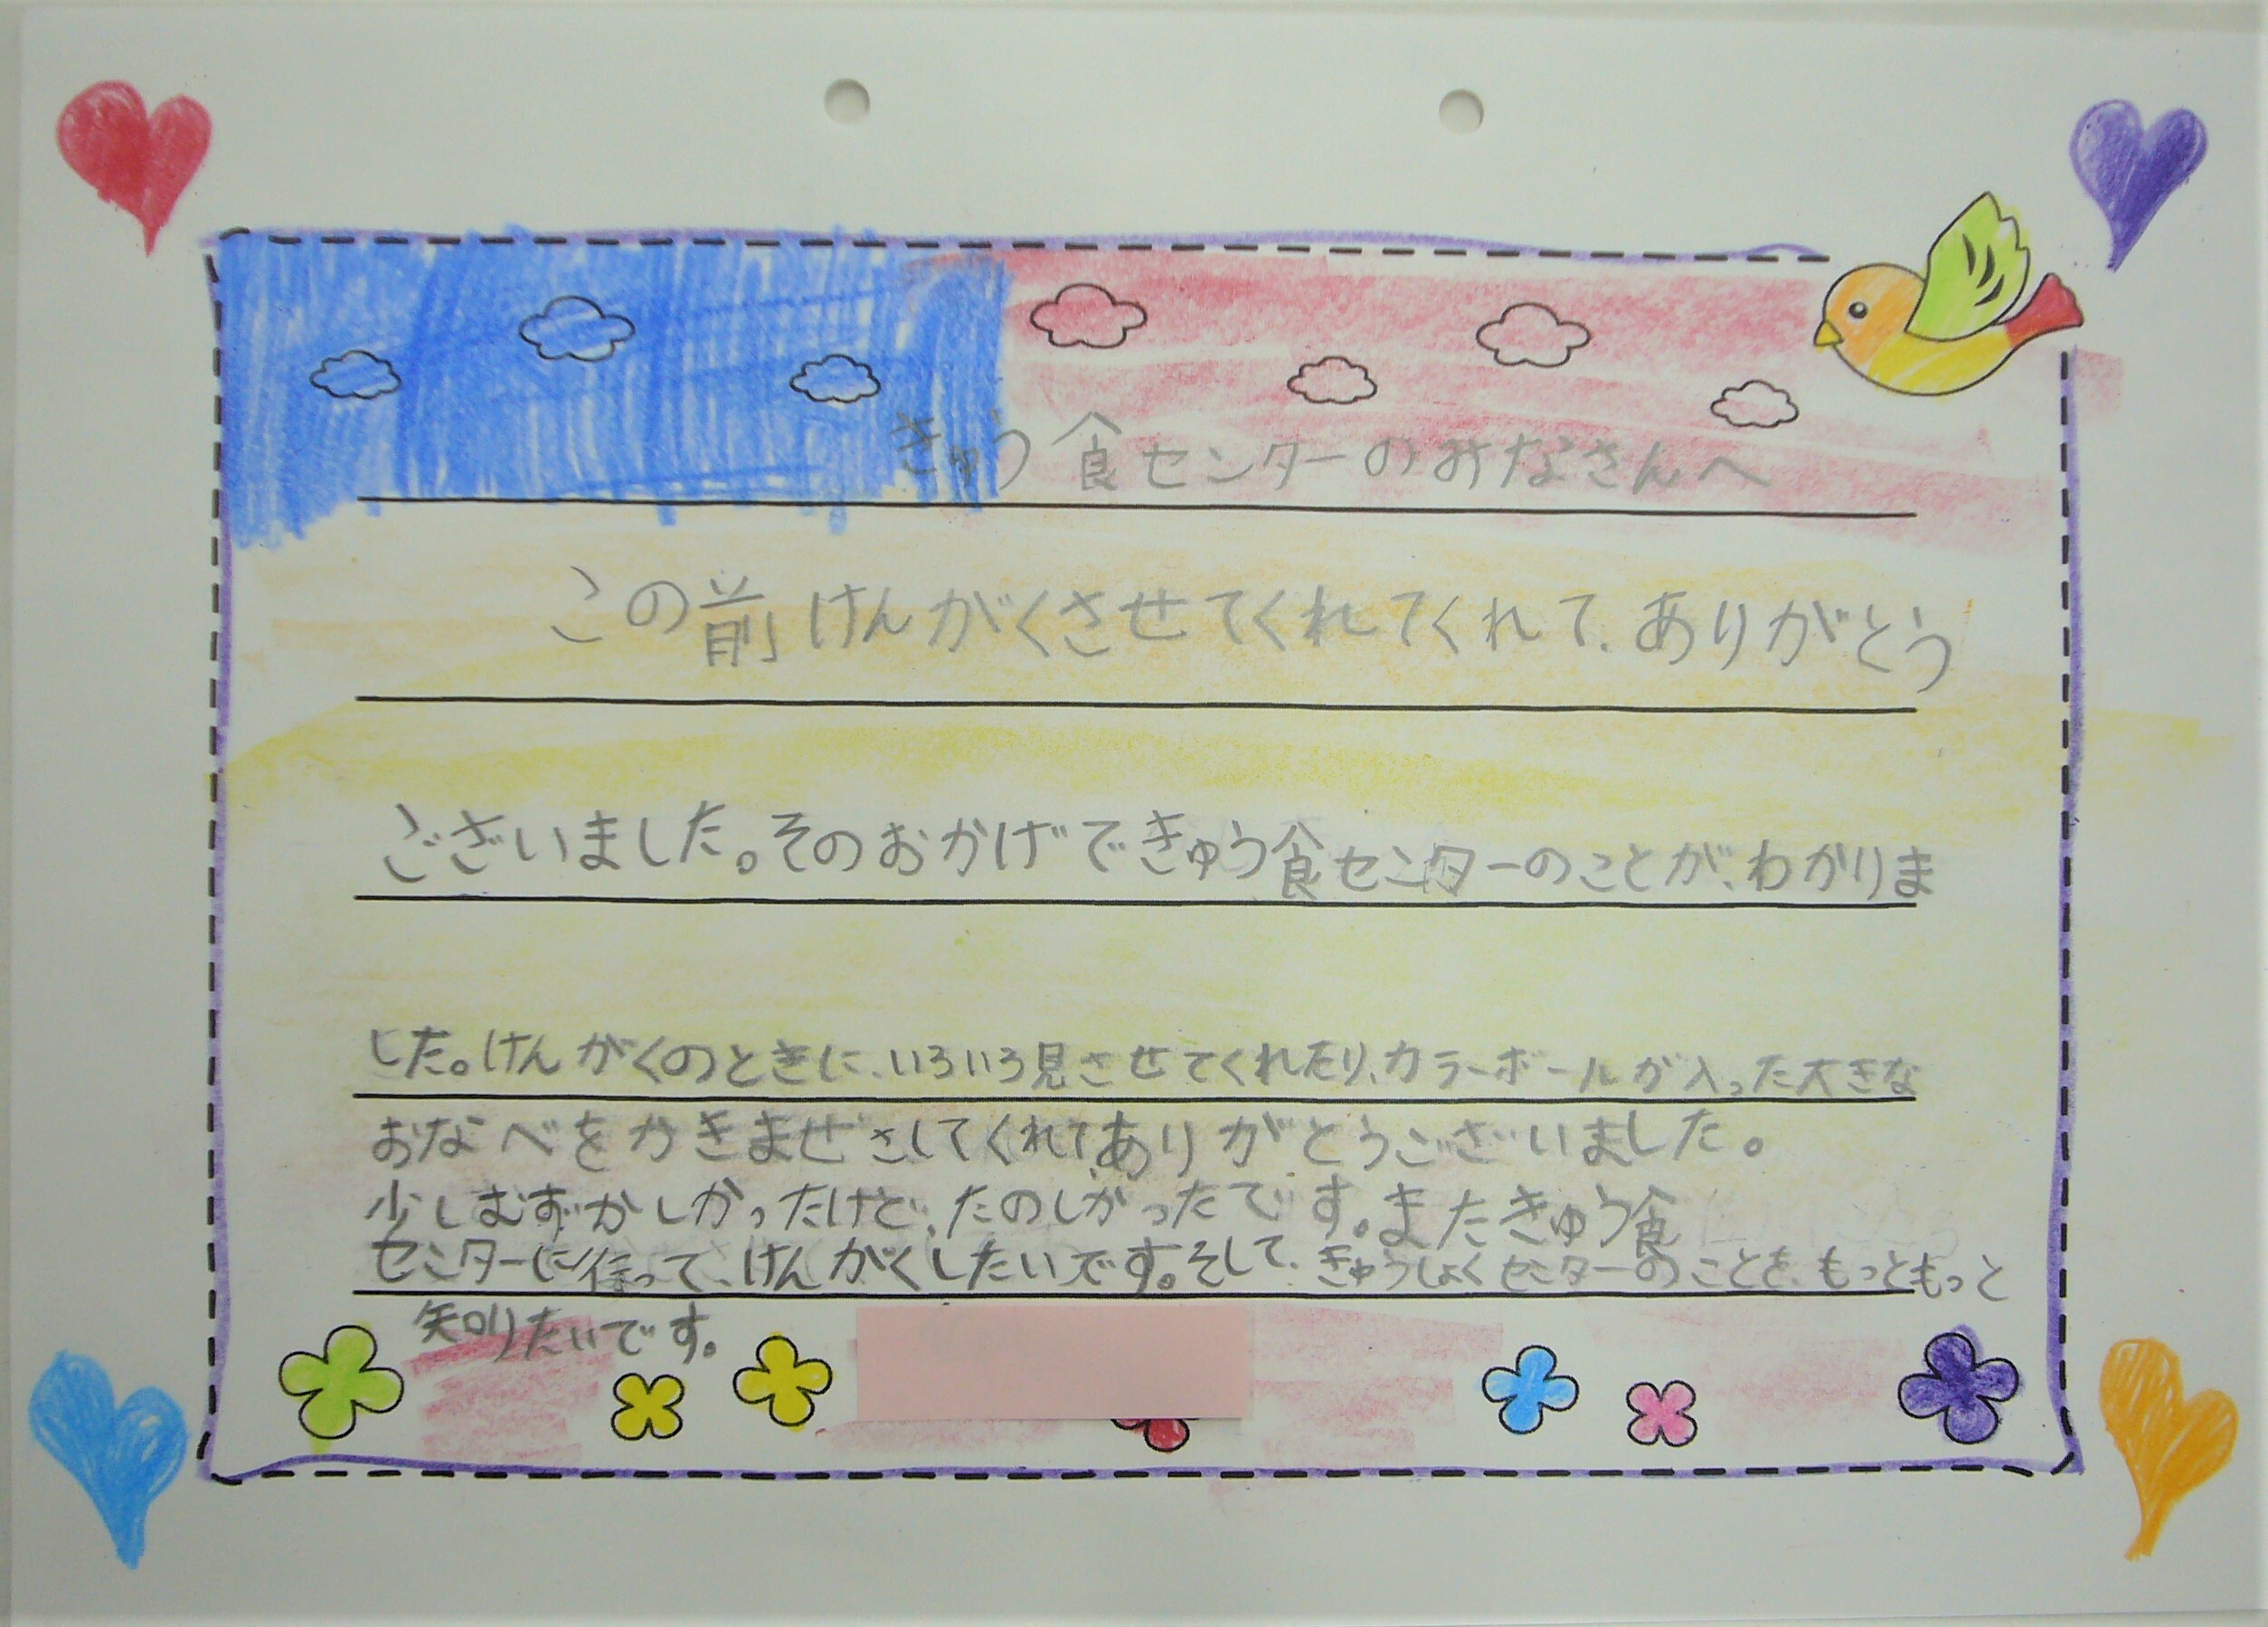 きゅう食センターのみなさんへ
この前けんがくさせてくれてくれて、ありがとう
ございました。そのおかげできゅう食センターのことが、わかりま
した。けんがくのときに、いろいろ見させてくれたり、カラーボールが入った大きな
おなべをかきまぜさしてくれて、ありがとうございました。
少しむずかしかったけど、たのしかったです。またきゅう食
センターに行って、けんがくしたいです。そして、きゅうしょくセンターのことを、もっともっと
知りたいです。